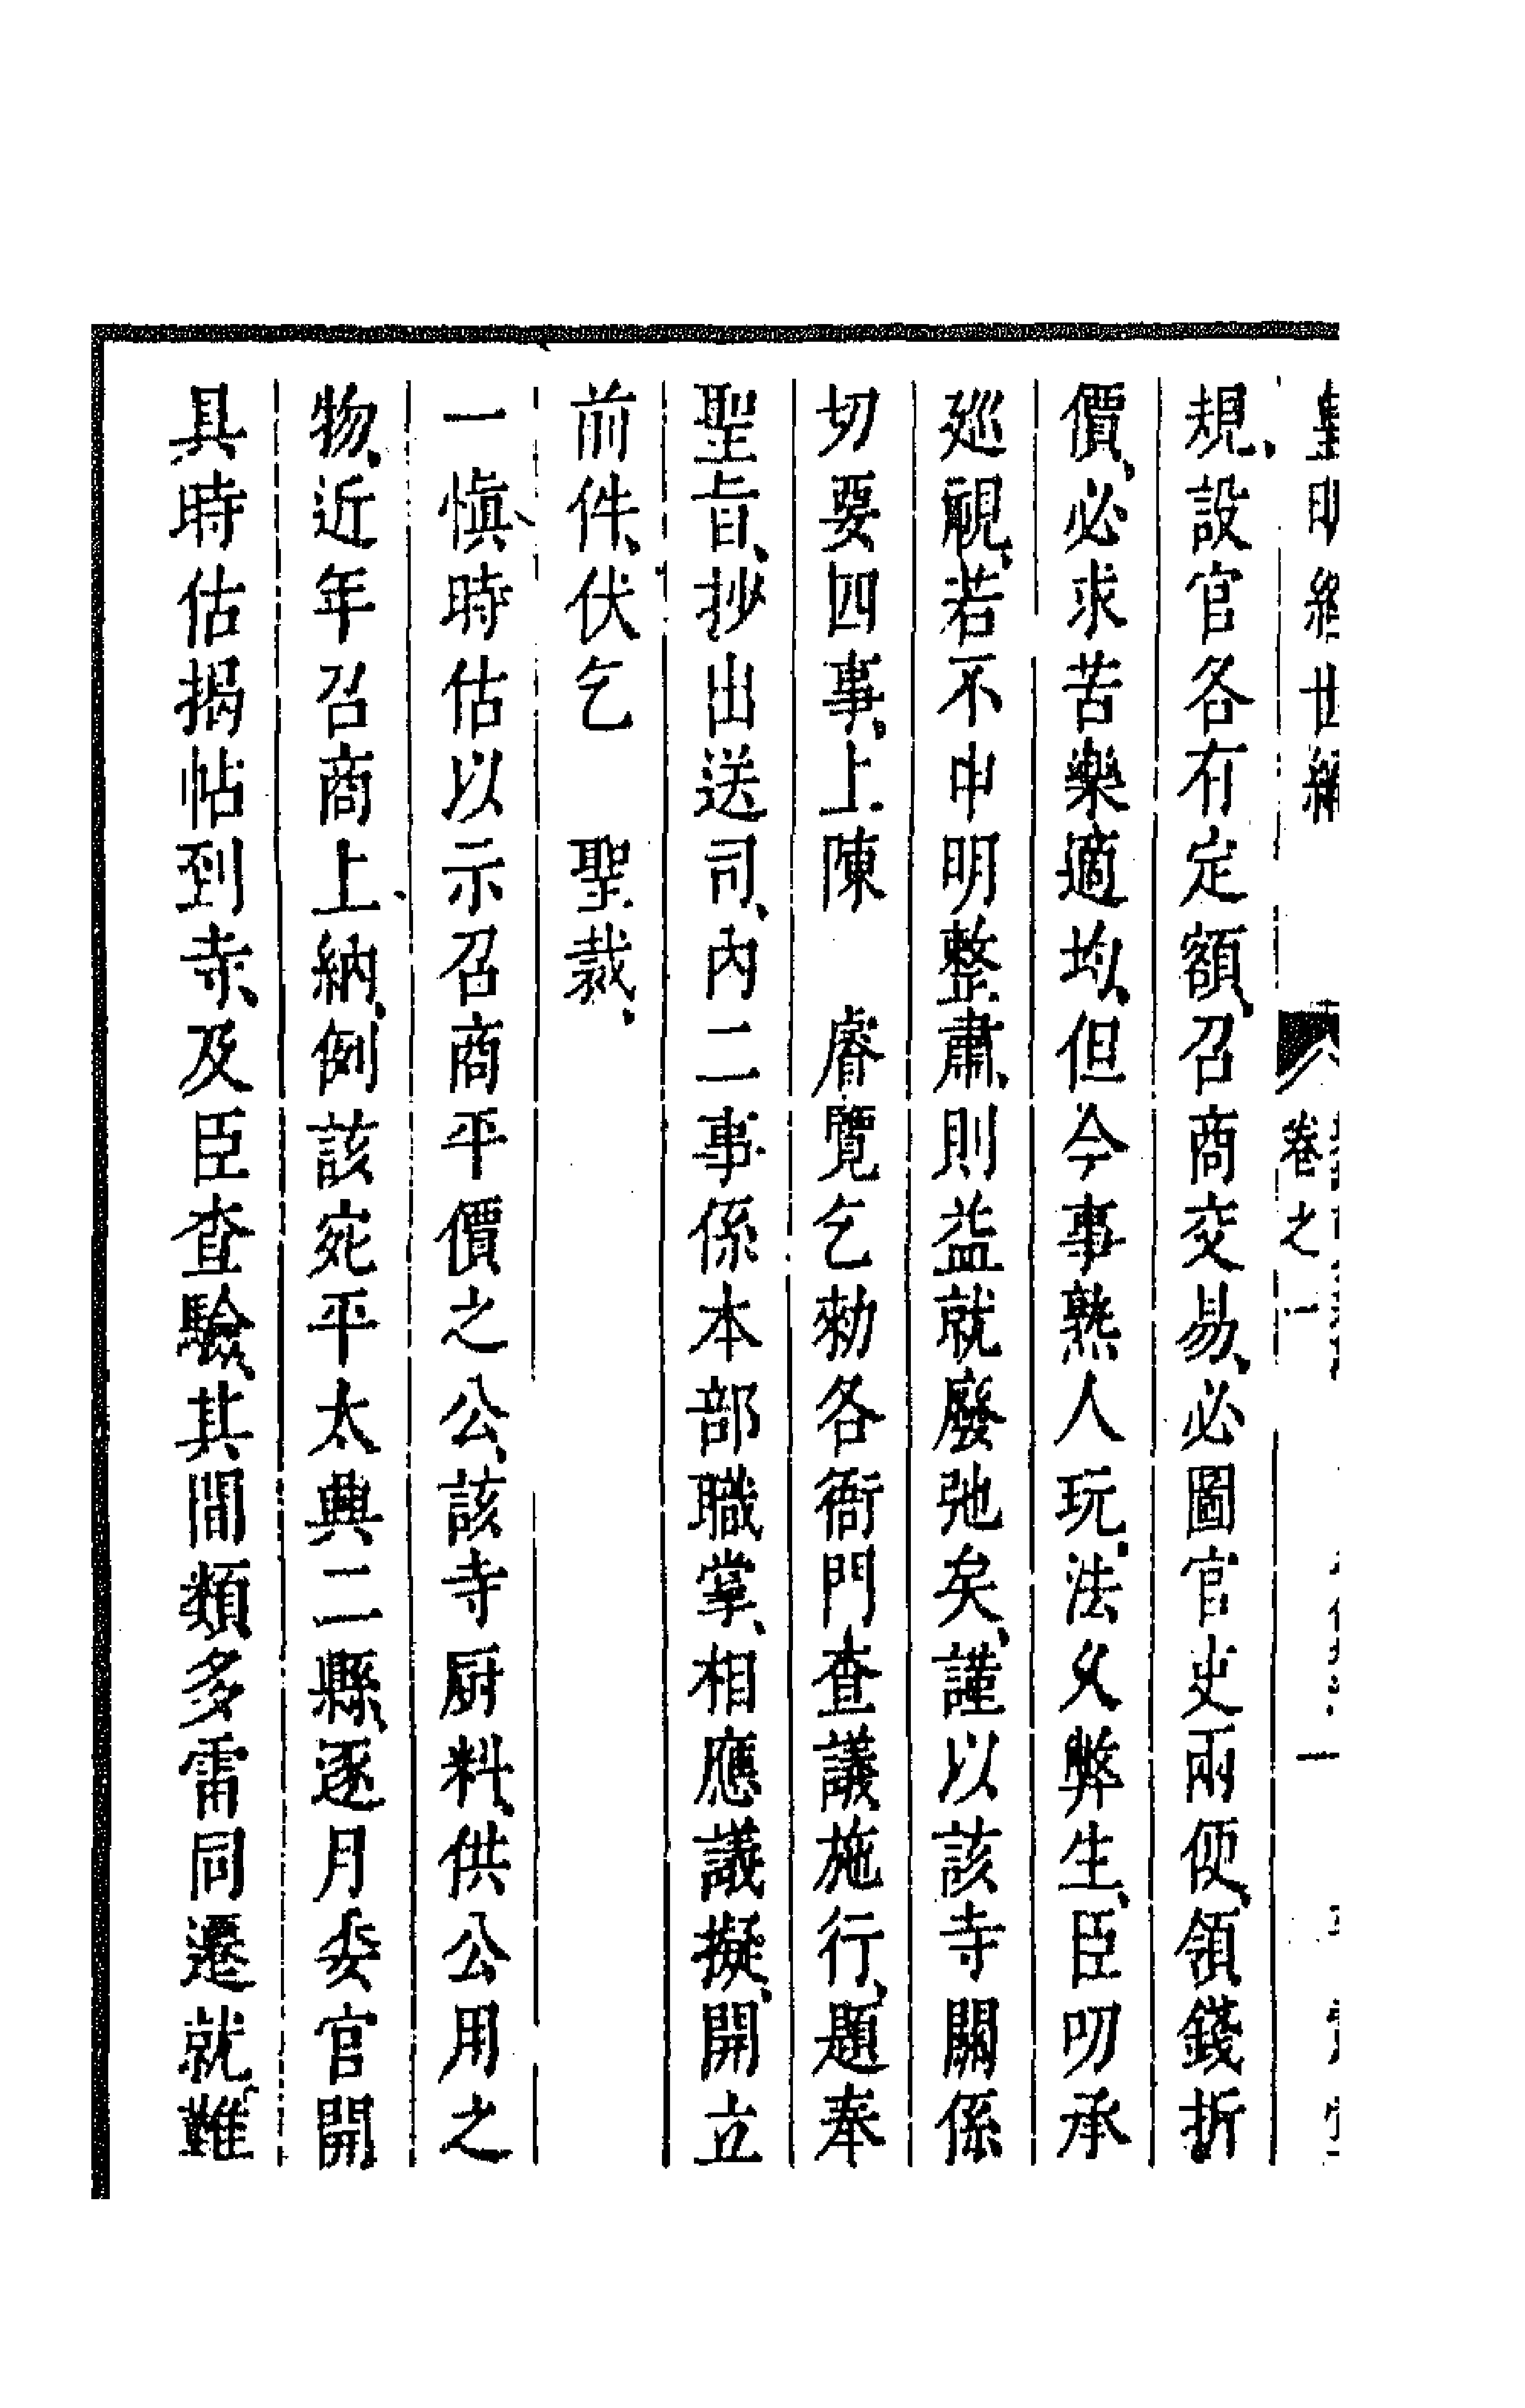 皇明經世編
卷之一
規、設官各有定額、召商交易、必圖官吏兩便、領錢折
價、必求苦樂適均、但今事熟人玩、法久弊生、臣叨承
廵視、若不申明整肅、則益就廢弛矣、謹以該寺關係
切要四事、上陳　睿覽乞勑各衙門查議施行、題奉
聖旨、抄出送司、內二事係本部職掌、相應議擬、開立
前件、伏乞　聖裁、
一愼時估以示召商平價之公、該寺厨料、供公用之
物、近年召商上納、例該宛平大興二縣、逐月委官開
具時估揭帖到寺、及臣查驗、其間類多雷同遷就、難